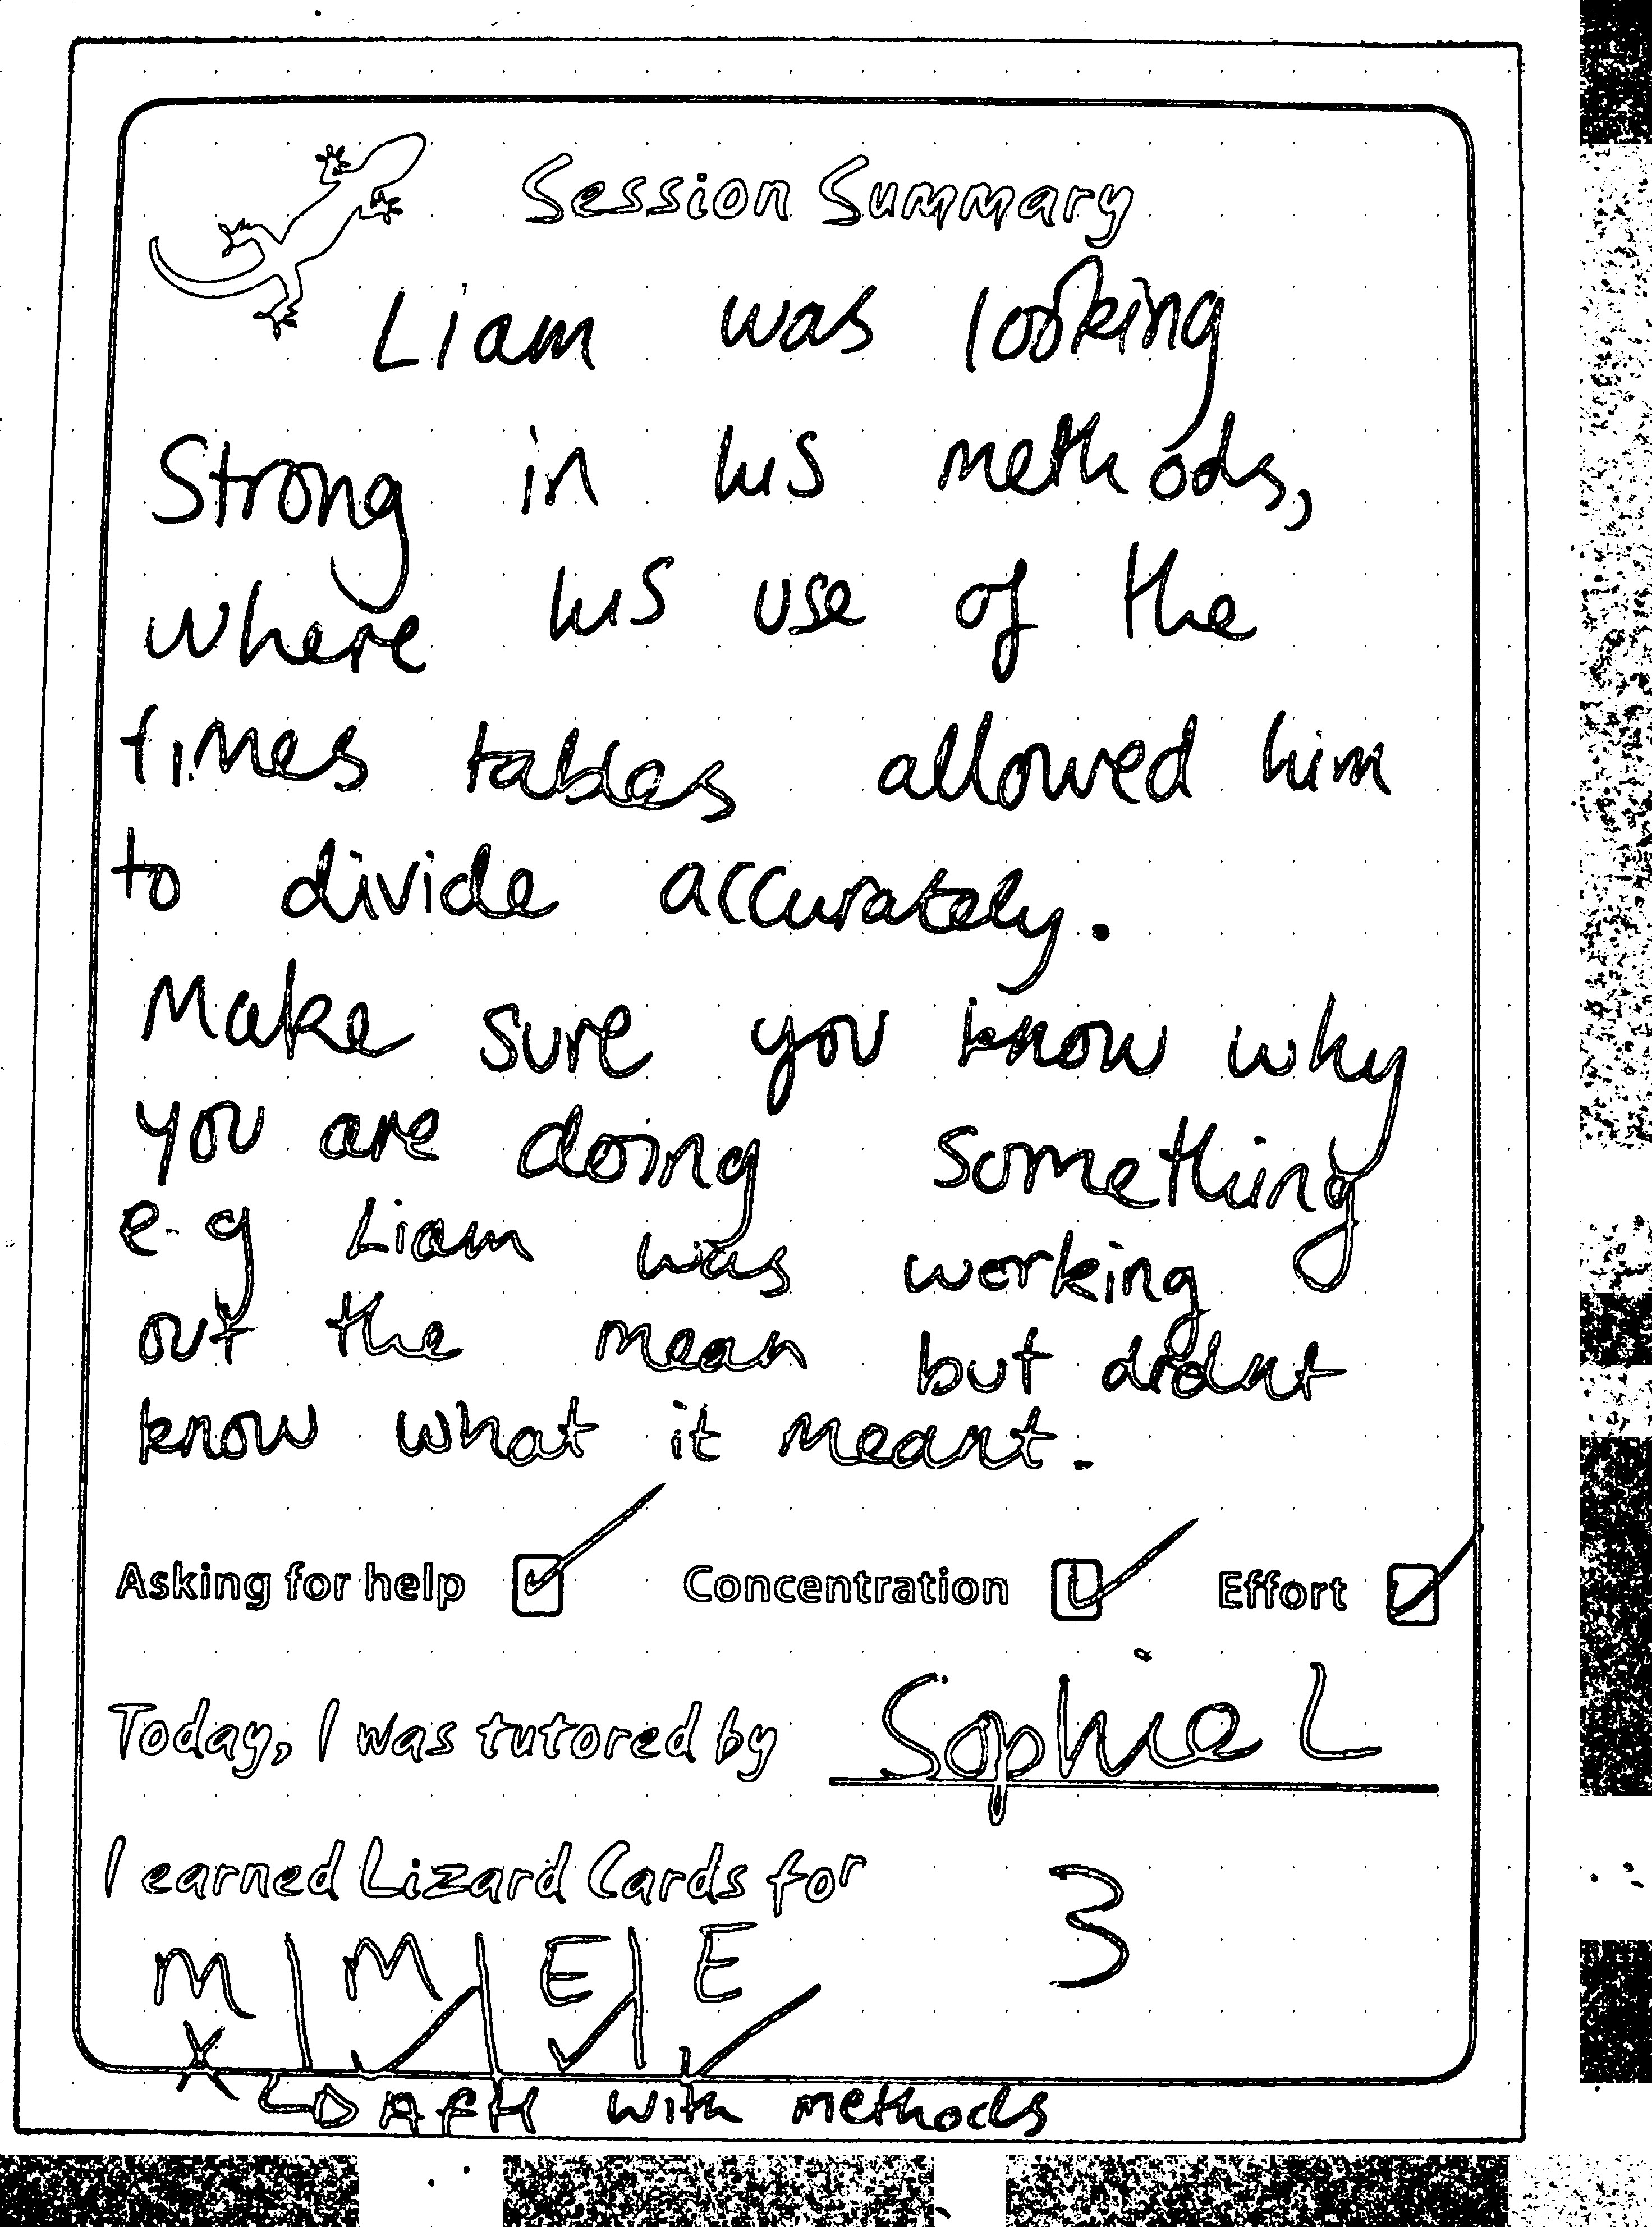 Session Summary
Liam was looking
Strong in his methods,
where his use of the
times tables allowed him
to divide accurately.
Make sure you know why
you are doing something
e.g Liam was working
out the mean but didnt
know what it meant.
Asking for help Concentration Effort
Today, I was tutored by Sophie L
I earned Lizard Cards for 3
M | M | E | E
AFH with methods